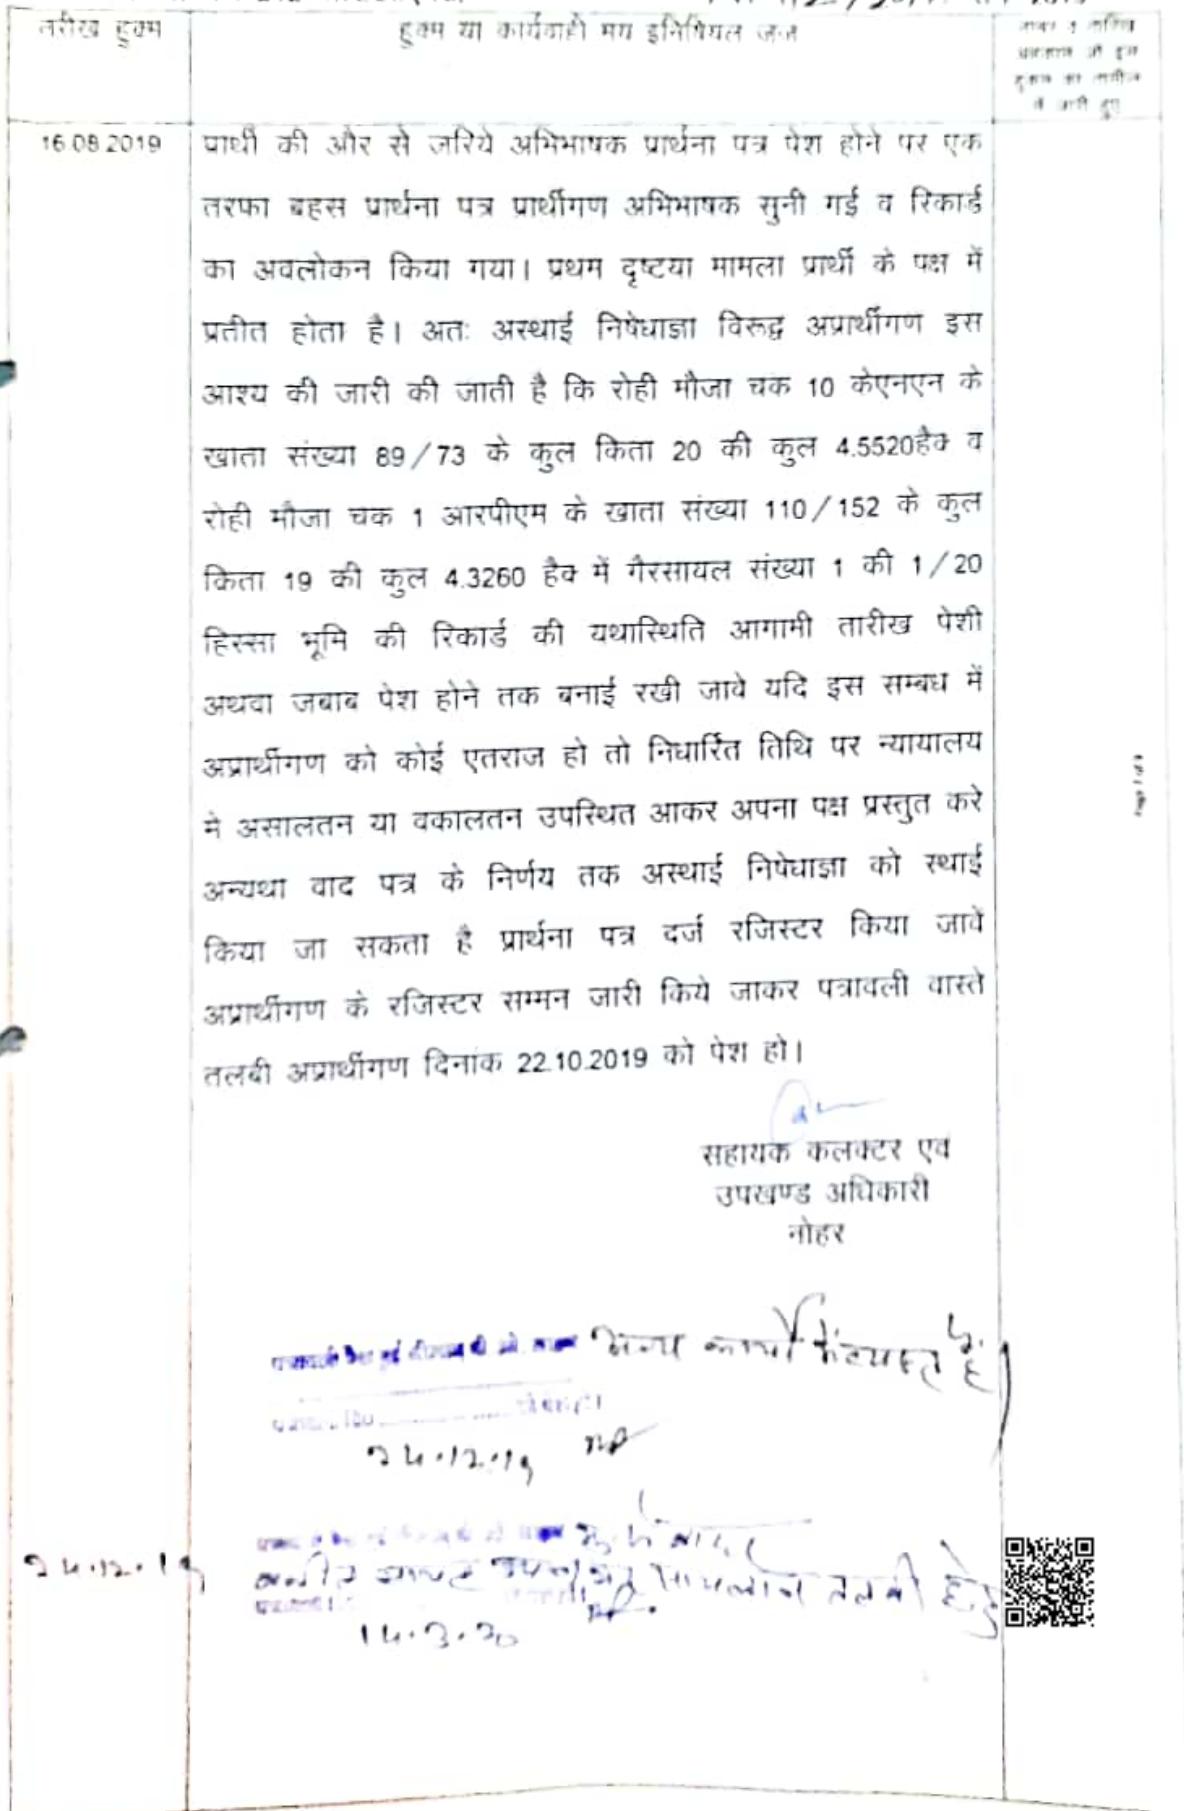 तारीख हुक्म
हुक्म या कार्यवाही मय इनिशियल जज
नम्बर व तारीख
अहकाम जो इस
हुकम की तामील
में जारी हुए
16.08.2019
प्रार्थी की और से जरिये अभिभाषक प्रार्थना पत्र पेश होने पर एक
तरफा बहस प्रार्थना पत्र प्रार्थीगण अभिभाषक सुनी गई व रिकार्ड
का अवलोकन किया गया। प्रथम दृष्टया मामला प्रार्थी के पक्ष में
प्रतीत होता है। अतः अस्थाई निषेधाज्ञा विरूद्ध अप्रार्थीगण इस
आश्य की जारी की जाती है कि रोही मौजा चक 10 केएनएन के
खाता संख्या 89/73 के कुल किता 20 की कुल 4.5520हैक व
रोही मौजा चक 1 आरपीएम के खाता संख्या 110/152 के कुल
किता 19 की कुल 4.3260 हैक में गैरसायल संख्या 1 की 1/20
हिस्सा भूमि की रिकार्ड की यथास्थिति आगामी तारीख पेशी
अथवा जबाब पेश होने तक बनाई रखी जावे यदि इस सम्बध में
अप्रार्थीगण को कोई एतराज हो तो निधारित तिथि पर न्यायालय
मे असालतन या वकालतन उपस्थित आकर अपना पक्ष प्रस्तुत करे
अन्यथा वाद पत्र के निर्णय तक अस्थाई निषेधाज्ञा को स्थाई
किया जा सकता है प्रार्थना पत्र दर्ज रजिस्टर किया जावें
अप्रार्थीगण के रजिस्टर सम्मन जारी किये जाकर पत्रावली वास्ते
तलबी अप्रार्थीगण दिनांक 22.10.2019 को पेश हो।
सहायक कलक्टर एवं
उपखण्ड अधिकारी
नोहर
अन्य कार्यो में व्यस्त है।
24.12.19
24.12.19
तलबी हेतु
14.3.20